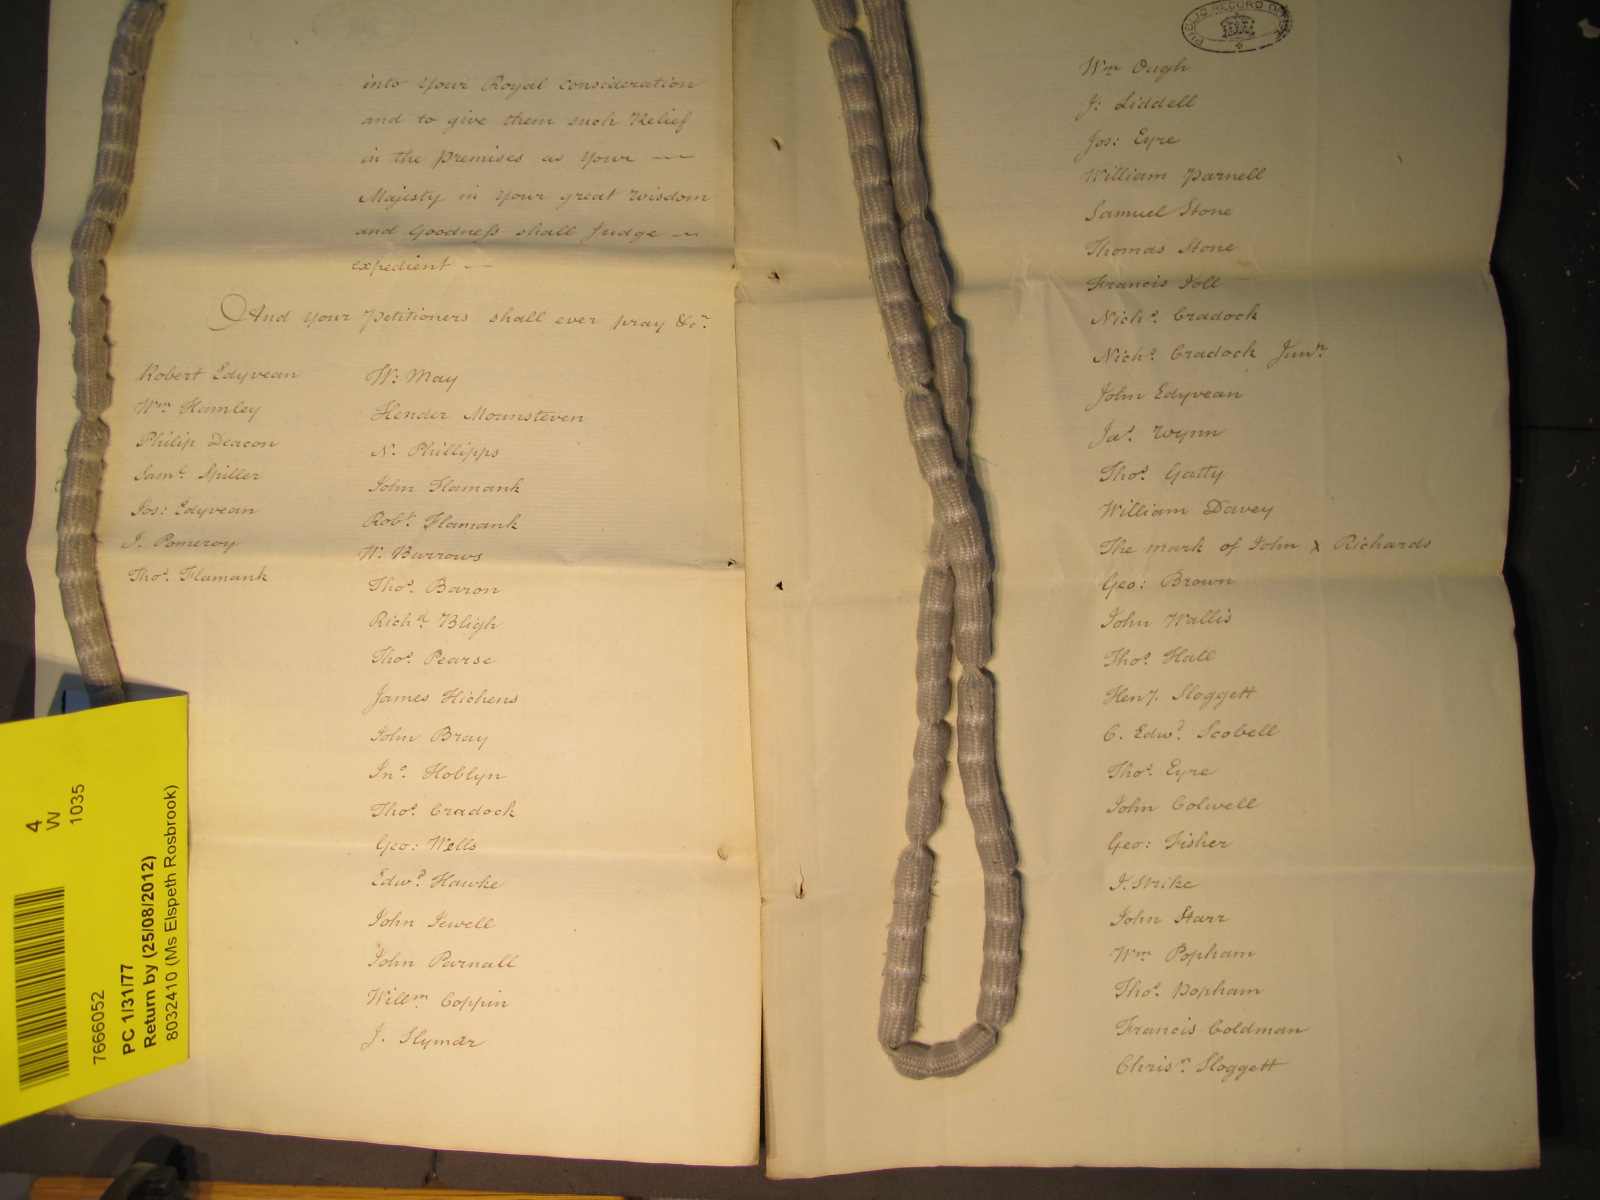 into Your Royal Consideration
and to give them such Relief
in the Premises as Your
Majesty in Your great Wisdom
and Goodness shall Judge
expedient
And Your Petitioners shall ever pray &c.
Robert Edyvean
Wm Hamley
Philip Deacon
Saml. Spiller
Jos: Edyvean
J. Pomeroy
Thos. Flamank
W: May
Hender Mounsteven
N. Phillipps
John Flamank
Robt. Flamank
W. Burrows
Thos. Baron
Richd. Bligh
Thos. Pearse
James Hichens
John Bray
Jno. Hoblyn
Thos. Cradock
Geo: Wells
Edwd. Hawke
John Jewell
John Parnall
Willm Coppin
J. Slyman
PUBLIC RECORD OFFICE
Wm Ough
J: Liddell
Jos: Eyre
William Parnell
Samuel Stone
Thomas Stone
Francis Joll
Nichs. Cradock
Nichs. Cradock Junr.
John Edyvean
Jas. Wynn
Thos. Gatty
William Davey
The mark of John X Richards
Geo: Brown
John Wallis
Thos. Hall
Heny. Sloggett
C. Edwd. Scobell
Thos. Eyre
John Colwell
Geo: Fisher
J. Strike
John Starr
Wm Popham
Thos. Popham
Francis Coldman
Chrisr. Sloggett
4
W
1035
7666052
PC 1/31/77
Return by (25/08/2012)
8032410 (Ms Elspeth Rosbrook)